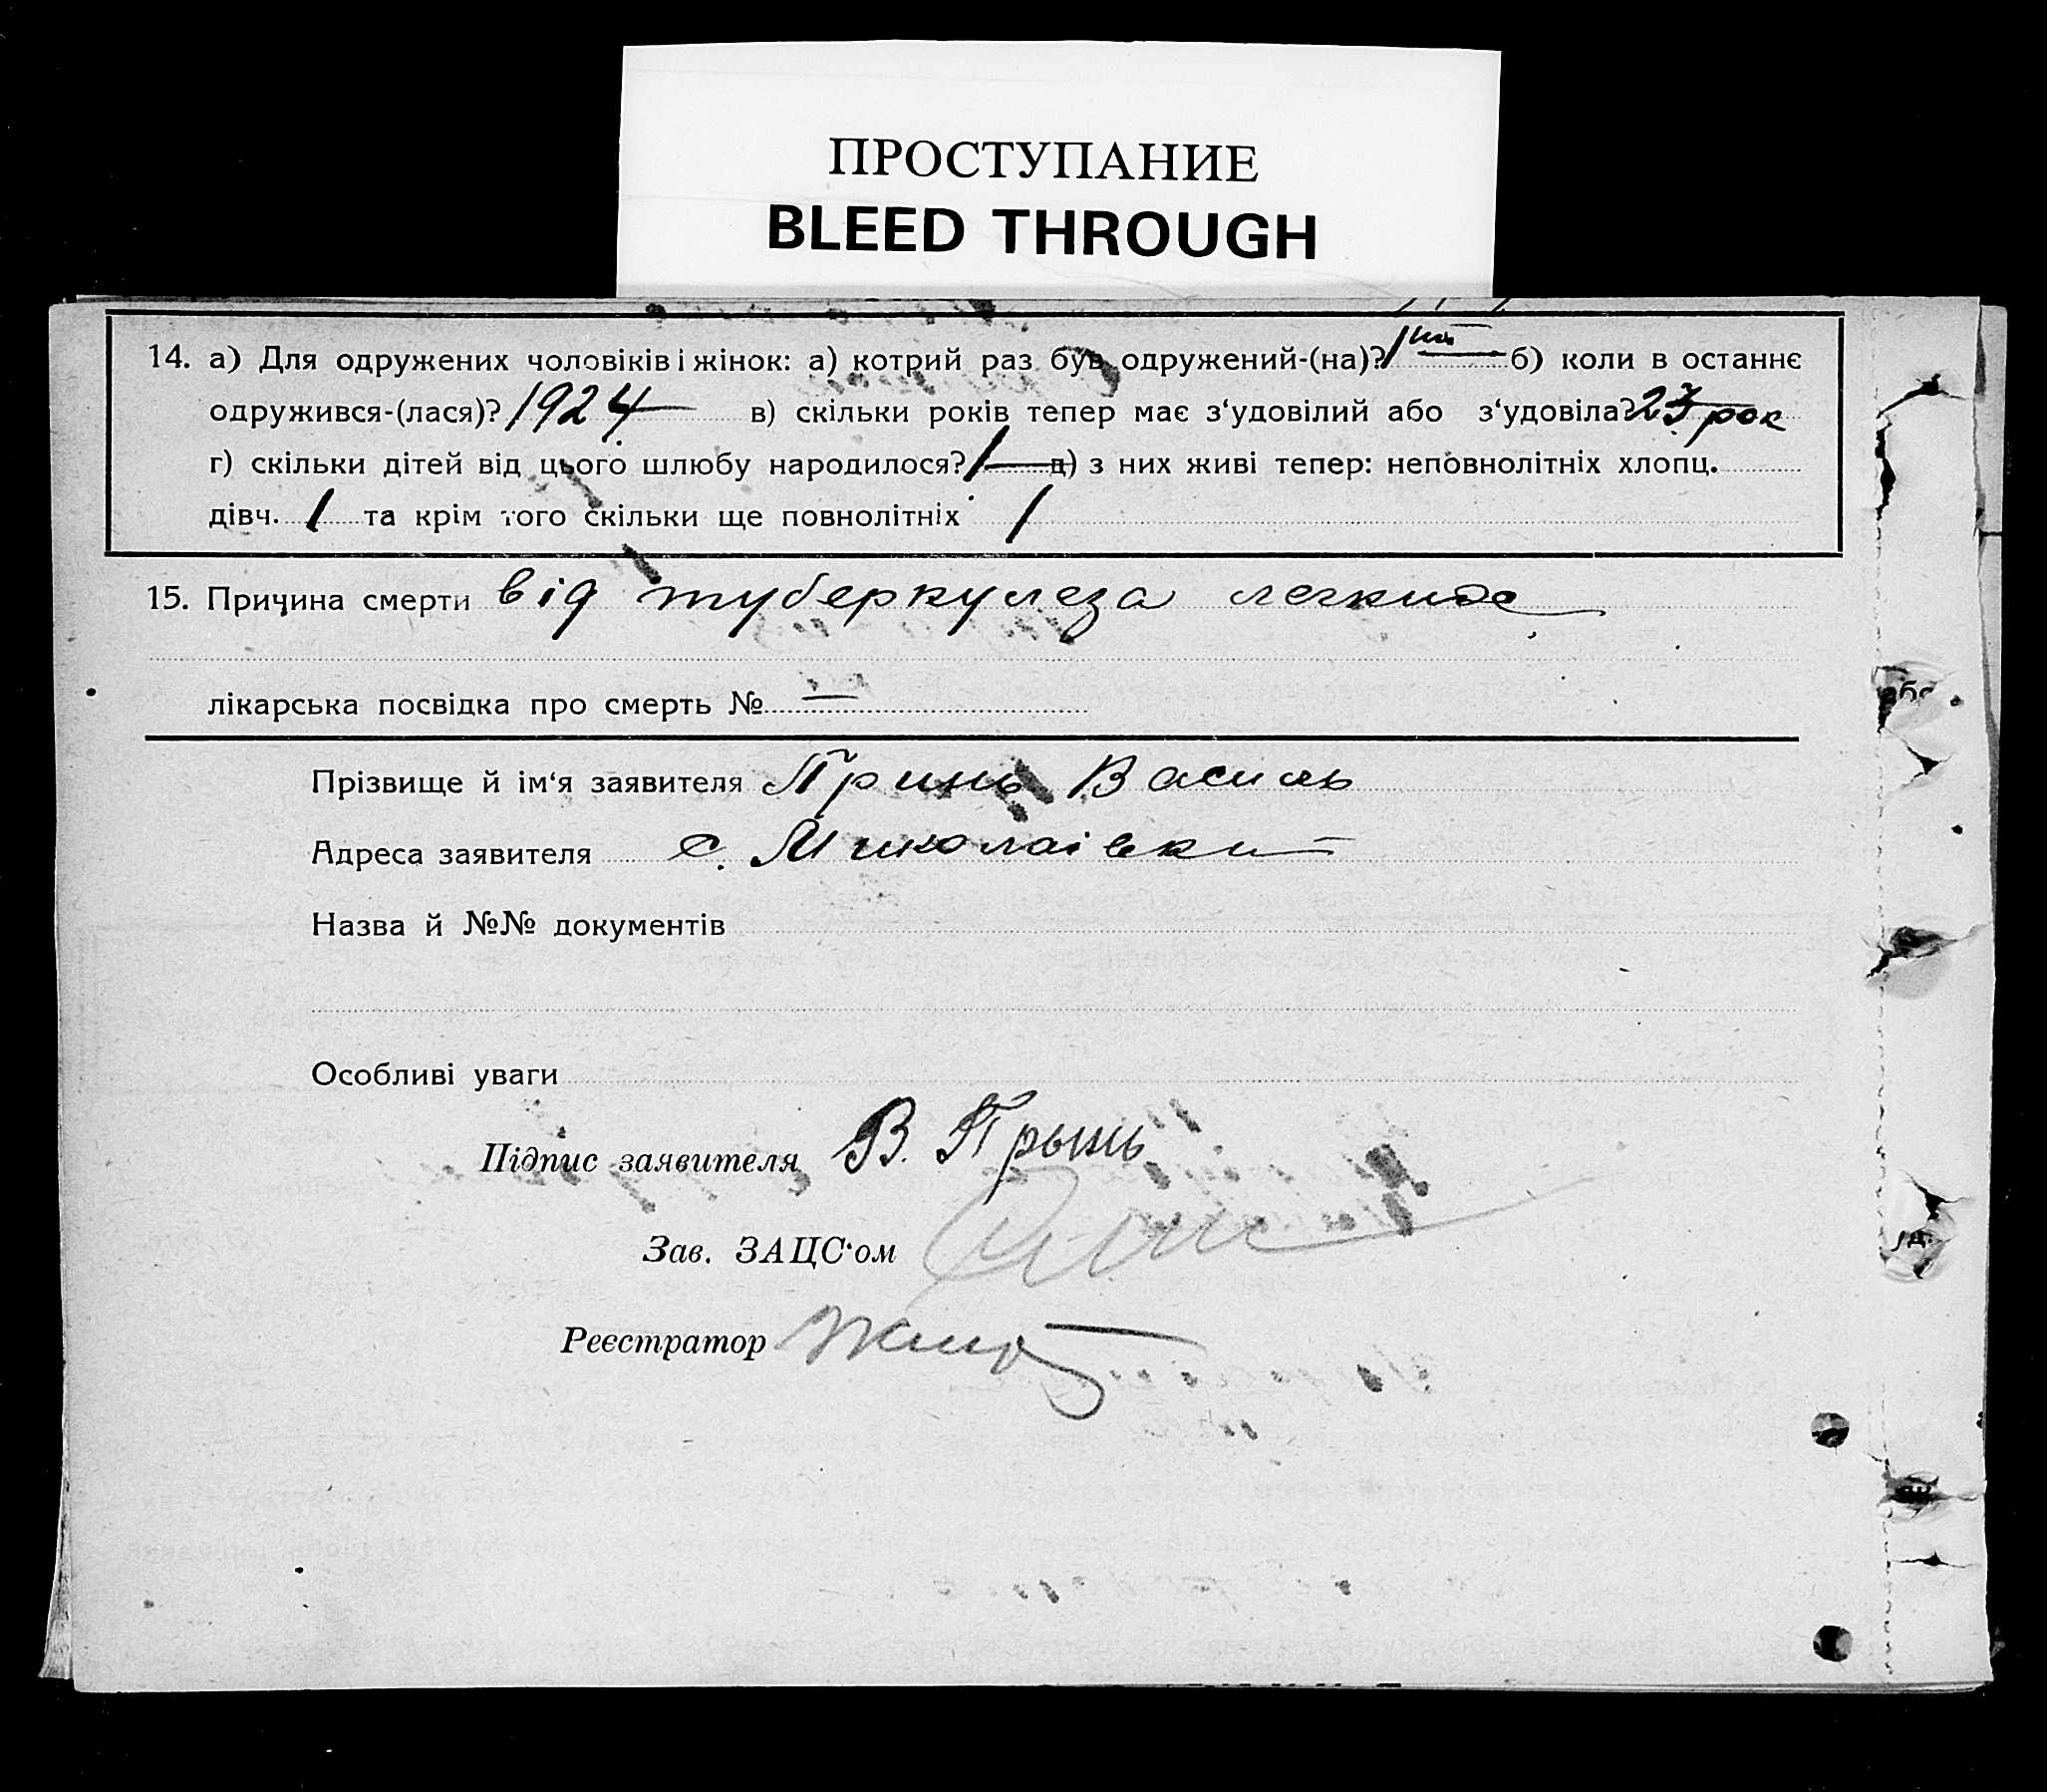 ПРОСТУПАНИЕ
BLEED THROUGH
14. а) Для одружених чоловіків і жінок: а) котрий раз був одружений-(на)? 1ий б) коли в останнє
одружився-(лася)? 1924 в) скільки років тепер має з‘удовілий або з‘удовіла? 23 рок
г) скільки дітей від цього шлюбу народилося? 1 д) з них живі тепер: неповнолітніх хлопц.
дівч. 1 та крім того скільки ще повнолітніх 1
15. Причина смерти від туберкулеза легких
лікарська посвідка про смерть № —
Прізвище й ім‘я заявителя Принь Василь
Адреса заявителя с. Миколаівки
Назва й №№ документів
Особливі уваги
Підпис заявителя В. Прынь
Зав. ЗАЦС‘ом
Реєстратор